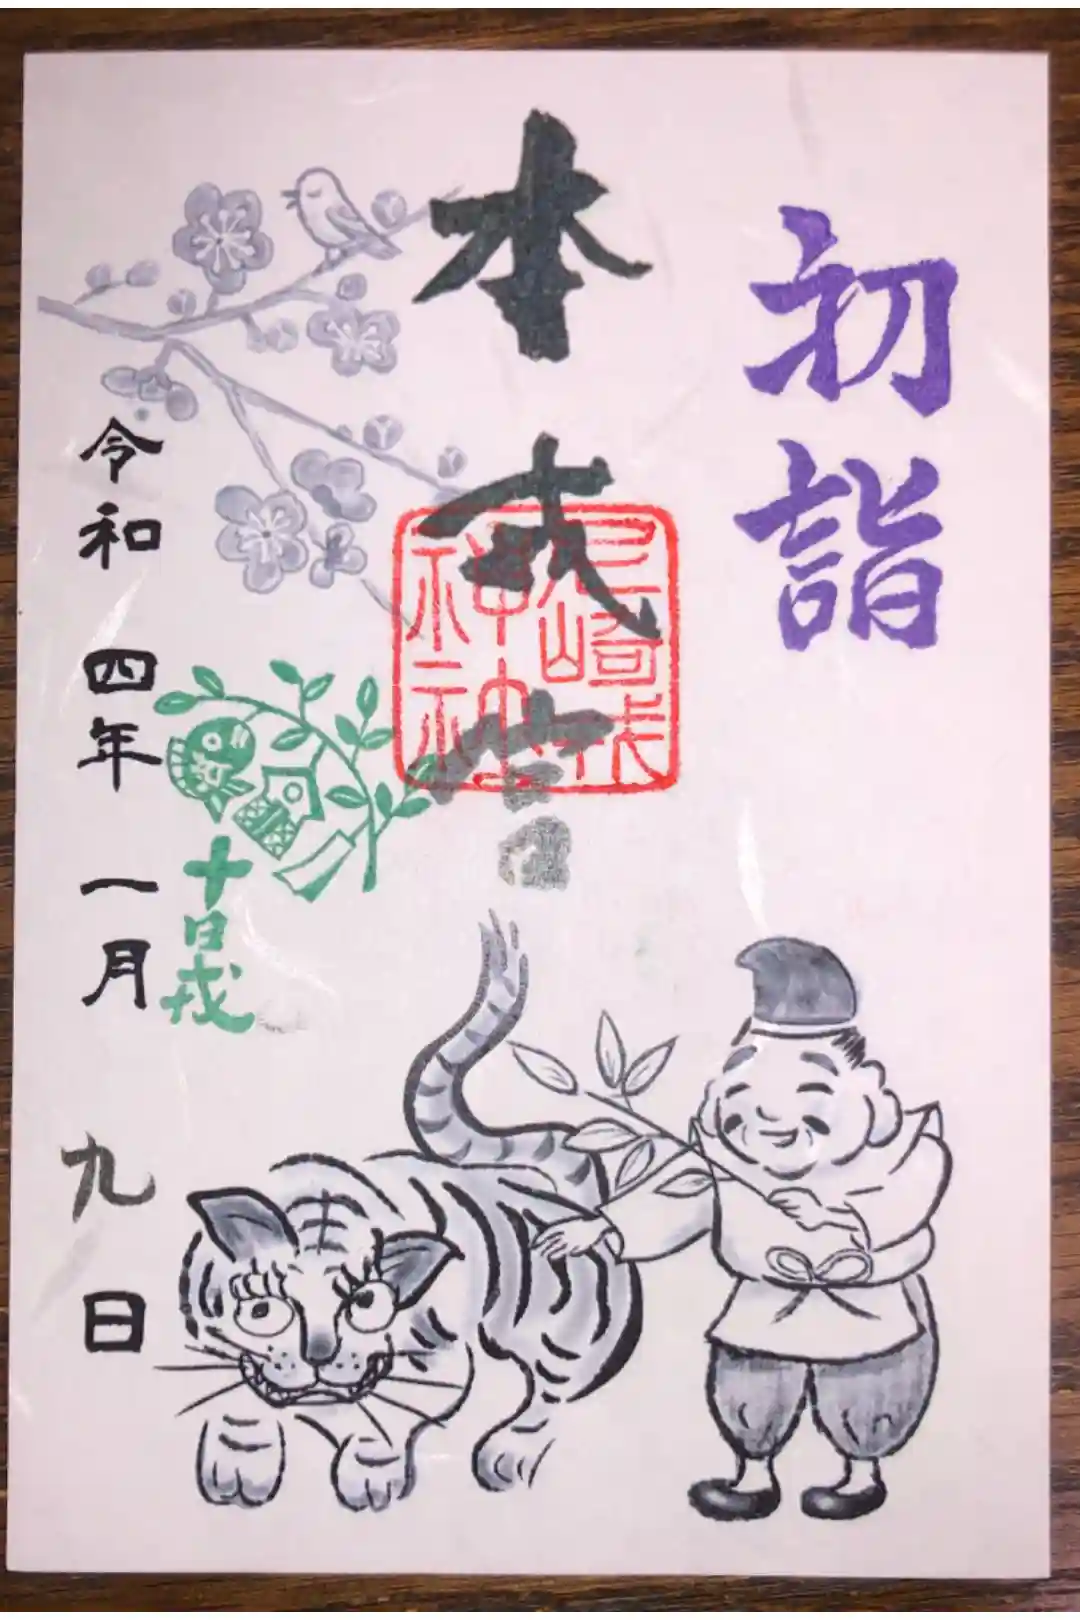 初詣
本戎
尼崎戎
神社
十日戎
令和 四年 一月 九日